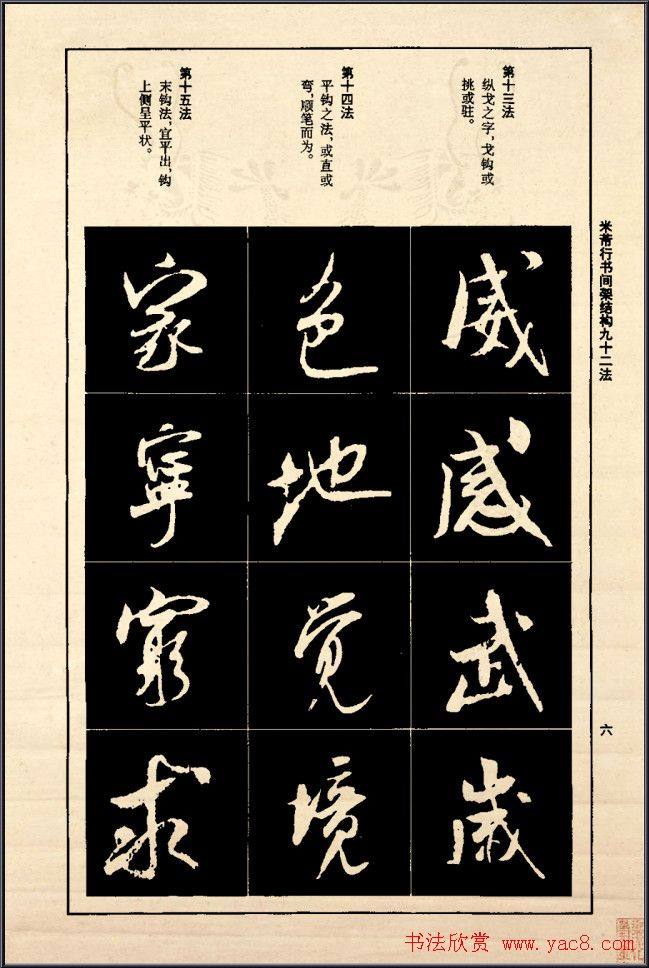 米芾行书间架结构九十二法
第十三法
纵戈之字，戈钩或
挑或驻。
威
感
武
歲
第十四法
平钩之法，或直或
弯，顺笔而为。
色
地
觉
境
第十五法
末钩法，宜平出，钩
上侧呈平状。
家
寧
窮
求
六
书法欣赏 www.yac8.com